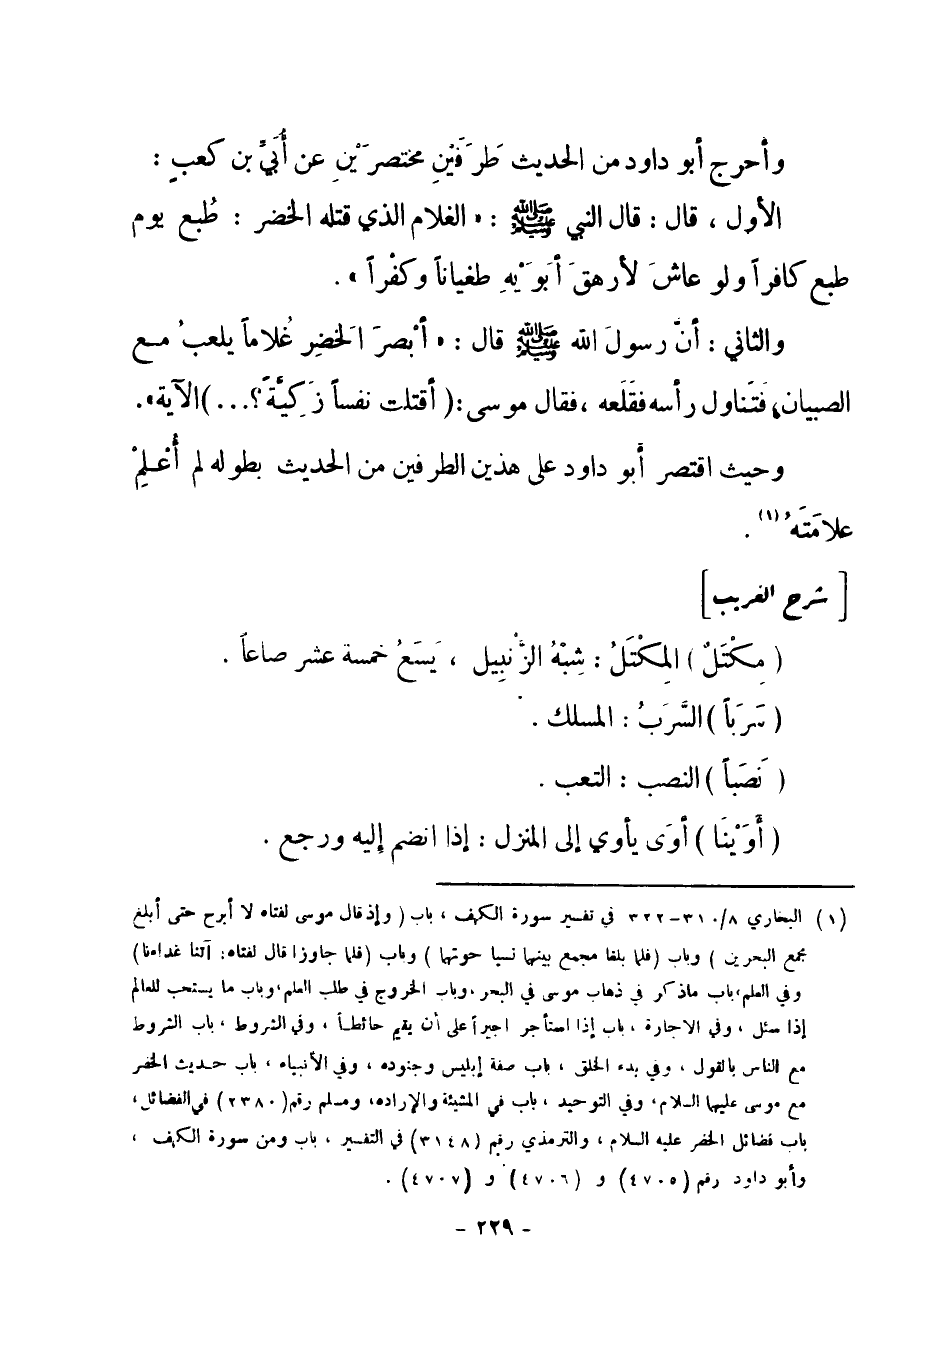 وأخرج أبو داود من الحديث طَرَفَيْنِ مختصرَيْنِ عن أُبَيِّ بن كعبٍ :
الأول ، قال : قال النبي ﷺ : « الغلام الذي قتله الخضر : طُبع يوم
طبع كافراً ولو عاشَ لأرهقَ أبوَيْهِ طغياناً وكفْراً » .
والثاني : أنَّ رسولَ الله ﷺ قال : « أبْصرَ الخضِر غُلاماً يلعبُ مع
الصبيان، فَتَناول رأسه فقَلَعه ، فقال موسى : ( أقتلت نفساً زَكِيَّةً ؟... ) الآية » .
وحيث اقتصر أبو داود على هذين الطرفين من الحديث بطوله لم أُعْلِمْ
علامَتَهُ (١) .
[ شرح الغريب ]
( مِكْتَلٌ ) المِكْتَلُ : شِبْهُ الزِّنْبِيل ، يَسَعُ خمسة عشر صاعاً .
( سَرَباً ) السَّرَبُ : المسلك .
( نَصَباً ) النصب : التعب .
( أَوَيْنَا ) أوَى يأوي إلى المنزل : إذا انضم إليه ورجع .
(١) البخاري ٣١٠/٨-٣٢٢ في تفسير سورة الكهف ، باب ( وإذ قال موسى لفتاه لا أبرح حتى أبلغ
مجمع البحرين ) وباب ( فلما بلغا مجمع بينهما نسيا حوتهما ) وباب ( فلما جاوزا قال لفتاه : آتنا غداءنا )
وفي العلم ، باب ما ذكر في ذهاب موسى في البحر ، وباب الخروج في طلب العلم ، وباب ما يستحب للعالم
إذا سئل ، وفي الاجارة ، باب إذا استأجر اجيراً على أن يقيم حائطاً ، وفي الشروط ، باب الشروط
مع الناس بالقول ، وفي بدء الخلق ، باب صفة إبليس وجنوده ، وفي الأنبياء ، باب حديث الخضر
مع موسى عليهما السلام ، وفي التوحيد ، باب في المشيئة والإراده ، ومسلم رقم ( ٢٣٨٠ ) في الفضائل ،
باب فضائل الخضر عليه السلام ، والترمذي رقم ( ٣١٤٨ ) في التفسير ، باب ومن سورة الكهف ،
وأبو داود رقم ( ٤٧٠٥ ) و ( ٤٧٠٦ ) و ( ٤٧٠٧ ) .
- ٢٢٩ -